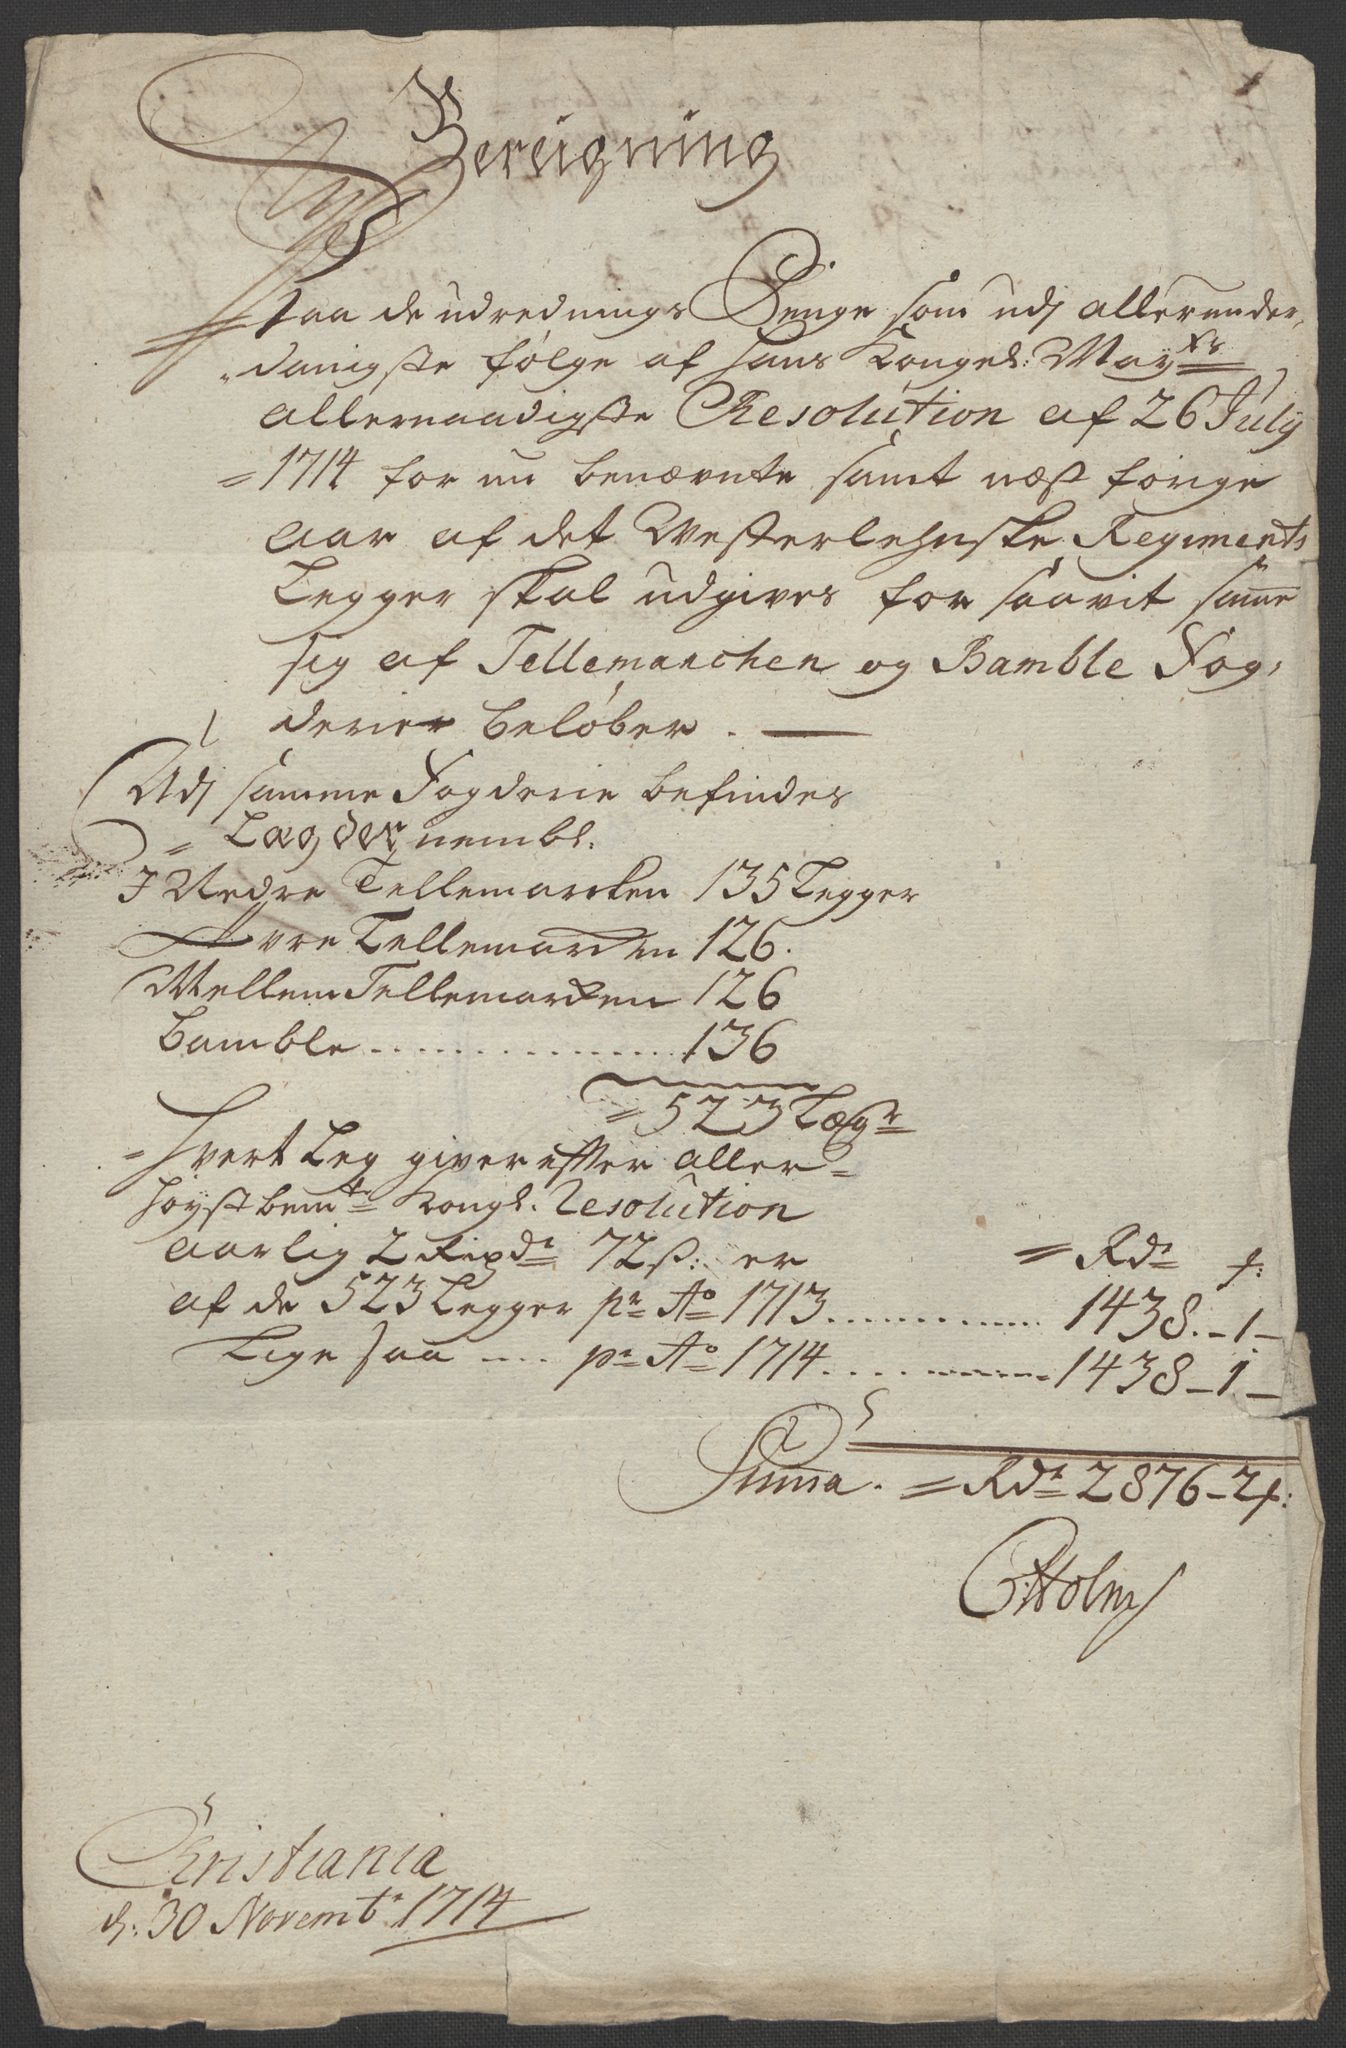 Beregning
Paa de udrednings Penge som udj allerunder,
danigste følge af Hans Kongel: Mayts
allernaadigste Resolution af 26 July
1714 for nu benævnte samt næst forige
Aar af det Westerlehnske Regiments
Legger skal udgives for saavit samme
sig af Tellemarchen og Bamble Fog,
derier beløber.
Udj samme Fogderie befindes
Lægder nembl.
I Nedre Tellemarcken 135 Legger
Øvre Tellemarcken 126.
Mellem Tellemarcken 126
Bamble 136
523 Lægr
Hvert Leg giver efter aller-
høyst bemte Kongl. Resolution
aarlig 2 Rixdr 72 ß: er = Rdr
af de 523 Legger pr Ao 1713 1438.-1-
Lige saa pr Ao 1714 1438-1-
Suma. = Rdr 2876-2
CHolm
Christiania
d: 30 Novembr 1714